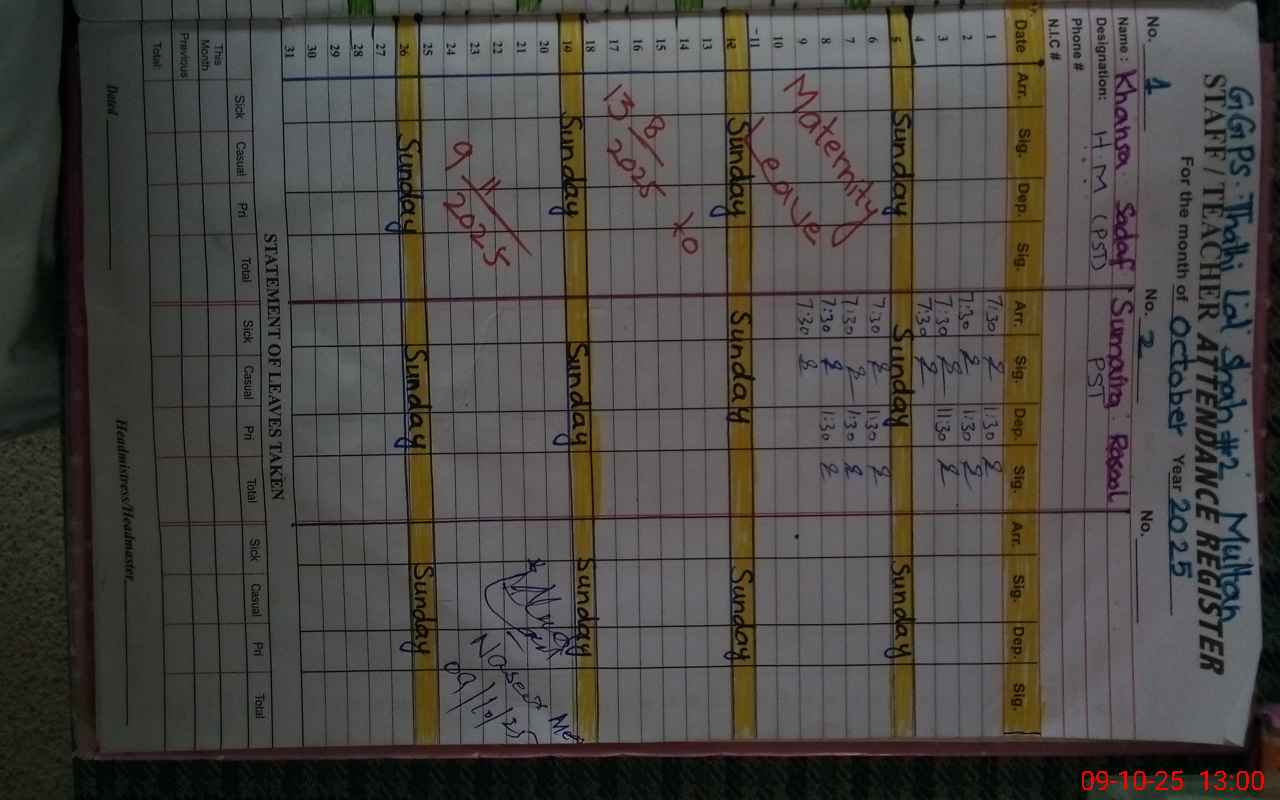 GGPS. Thathi Lal Shah #2 Multan
STAFF / TEACHER ATTENDANCE REGISTER
For the month of October Year 2025
No. 1 No. 2 No.
Name: Khansa Sadaf Sumaira Rasool
Designation: H.M (PST) PST
Phone #
N.I.C #
Date Arr. Sig. Dep. Sig. Arr. Sig. Dep. Sig. Arr. Sig. Dep. Sig.
1 7:30 1:30
2 7:30 1:30
3 7:30 11:30
4 7:30
5 Sunday Sunday Sunday
6 7:30 1:30
7 7:30 1:30
8 7:30 1:30
9 7:30
10
11
12 Sunday Sunday Sunday
13
14
15
16
17
18
19 Sunday Sunday Sunday
20
21
22
23
24
25
26 Sunday Sunday Sunday
27
28
29
30
31
Maternity
Leave
13/8/2025 to
9/11/2025
09/10/25
STATEMENT OF LEAVES TAKEN
Sick Casual Pri Total Sick Casual Pri Total Sick Casual Pri Total
This Month
Previous
Total
Dated Headmistress/Headmaster
09-10-25 13:00